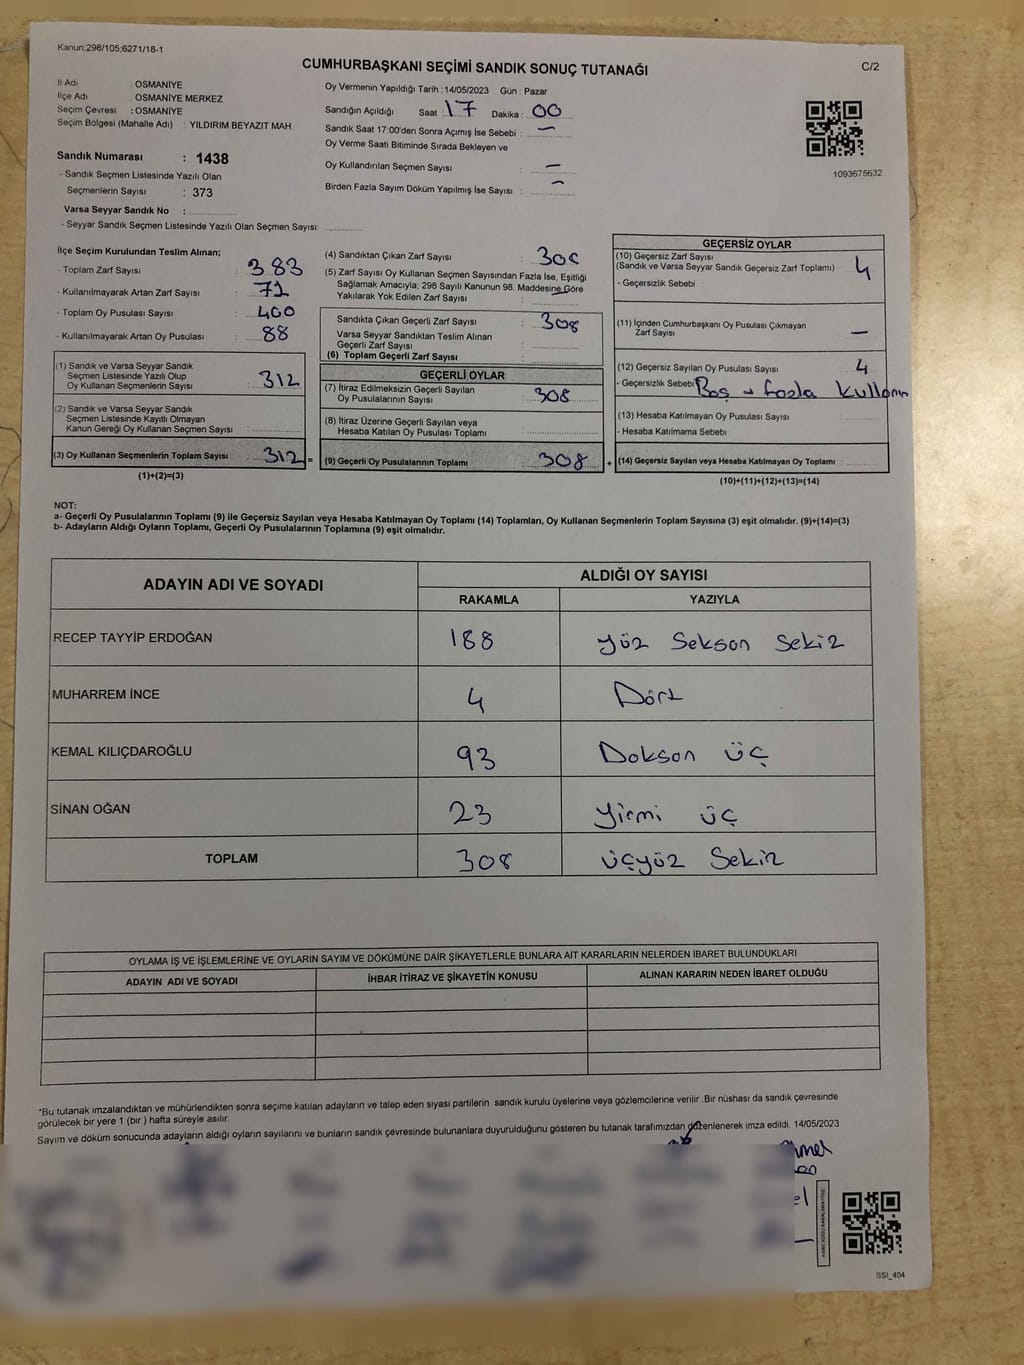 Kanun:298/105;6271/18-1
CUMHURBAŞKANI SEÇİMİ SANDIK SONUÇ TUTANAĞI
C/2
İl Adı : OSMANİYE
İlçe Adı : OSMANİYE MERKEZ
Seçim Çevresi : OSMANİYE
Seçim Bölgesi (Mahalle Adı) : YILDIRIM BEYAZIT MAH.
Sandık Numarası : 1438
- Sandık Seçmen Listesinde Yazılı Olan
Seçmenlerin Sayısı : 373
Varsa Seyyar Sandık No :
- Seyyar Sandık Seçmen Listesinde Yazılı Olan Seçmen Sayısı:
Oy Vermenin Yapıldığı Tarih : 14/05/2023 Gün : Pazar
Sandığın Açıldığı Saat : 17 Dakika : 00
Sandık Saat 17:00'den Sonra Açımış İse Sebebi : —
Oy Verme Saati Bitiminde Sırada Bekleyen ve
Oy Kullandırılan Seçmen Sayısı : —
Birden Fazla Sayım Döküm Yapılmış İse Sayısı : —
1093675632
İlçe Seçim Kurulundan Teslim Alınan;
- Toplam Zarf Sayısı : 383
- Kullanılmayarak Artan Zarf Sayısı : 71
- Toplam Oy Pusulası Sayısı : 400
- Kullanılmayarak Artan Oy Pusulası : 88
(1) Sandık ve Varsa Seyyar Sandık
Seçmen Listesinde Yazılı Olup
Oy Kullanan Seçmenlerin Sayısı : 312
(2) Sandık ve Varsa Seyyar Sandık
Seçmen Listesinde Kayıtlı Olmayan
Kanun Gereği Oy Kullanan Seçmen Sayısı :
(3) Oy Kullanan Seçmenlerin Toplam Sayısı : 312 =
(1)+(2)=(3)
(4) Sandıktan Çıkan Zarf Sayısı :
(5) Zarf Sayısı Oy Kullanan Seçmen Sayısından Fazla İse, Eşitliği
Sağlamak Amacıyla; 298 Sayılı Kanunun 98. Maddesine Göre
Yakılarak Yok Edilen Zarf Sayısı :
Sandıkta Çıkan Geçerli Zarf Sayısı : 308
Varsa Seyyar Sandıktan Teslim Alınan
Geçerli Zarf Sayısı :
(6) Toplam Geçerli Zarf Sayısı :
GEÇERLİ OYLAR
(7) İtiraz Edilmeksizin Geçerli Sayılan
Oy Pusulalarının Sayısı : 308
(8) İtiraz Üzerine Geçerli Sayılan veya
Hesaba Katılan Oy Pusulası Toplamı :
(9) Geçerli Oy Pusulalarının Toplamı : 308 +
GEÇERSİZ OYLAR
(10) Geçersiz Zarf Sayısı : 4
(Sandık ve Varsa Seyyar Sandık Geçersiz Zarf Toplamı)
- Geçersizlik Sebebi :
(11) İçinden Cumhurbaşkanı Oy Pusulası Çıkmayan
Zarf Sayısı : —
(12) Geçersiz Sayılan Oy Pusulası Sayısı : 4
- Geçersizlik Sebebi Boş fazla kullanım
(13) Hesaba Katılmayan Oy Pusulası Sayısı :
- Hesaba Katılmama Sebebi :
(14) Geçersiz Sayılan veya Hesaba Katılmayan Oy Toplamı :
(10)+(11)+(12)+(13)=(14)
NOT:
a- Geçerli Oy Pusulalarının Toplamı (9) ile Geçersiz Sayılan veya Hesaba Katılmayan Oy Toplamı (14) Toplamları, Oy Kullanan Seçmenlerin Toplam Sayısına (3) eşit olmalıdır. (9)+(14)=(3)
b- Adayların Aldığı Oyların Toplamı, Geçerli Oy Pusulalarının Toplamına (9) eşit olmalıdır.
ADAYIN ADI VE SOYADI
ALDIĞI OY SAYISI
RAKAMLA YAZIYLA
RECEP TAYYİP ERDOĞAN 188 Yüz Seksen Sekiz
MUHARREM İNCE 4 Dört
KEMAL KILIÇDAROĞLU 93 Doksan üç
SİNAN OĞAN 23 Yirmi üç
TOPLAM 308 üçyüz Sekiz
OYLAMA İŞ VE İŞLEMLERİNE VE OYLARIN SAYIM VE DÖKÜMÜNE DAİR ŞİKAYETLERLE BUNLARA AİT KARARLARIN NELERDEN İBARET BULUNDUKLARI
ADAYIN ADI VE SOYADI İHBAR İTİRAZ VE ŞİKAYETİN KONUSU ALINAN KARARIN NEDEN İBARET OLDUĞU
*Bu tutanak imzalandıktan ve mühürlendikten sonra seçime katılan adayların ve talep eden siyasi partilerin sandık kurulu üyelerine veya gözlemcilerine verilir .Bir nüshası da sandık çevresinde
görülecek bir yere 1 (bir ) hafta süreyle asılır.
Sayım ve döküm sonucunda adayların aldığı oyların sayılarını ve bunların sandık çevresinde bulunanlara duyurulduğunu gösteren bu tutanak tarafımızdan düzenlenerek imza edildi. 14/05/2023
SSI_404